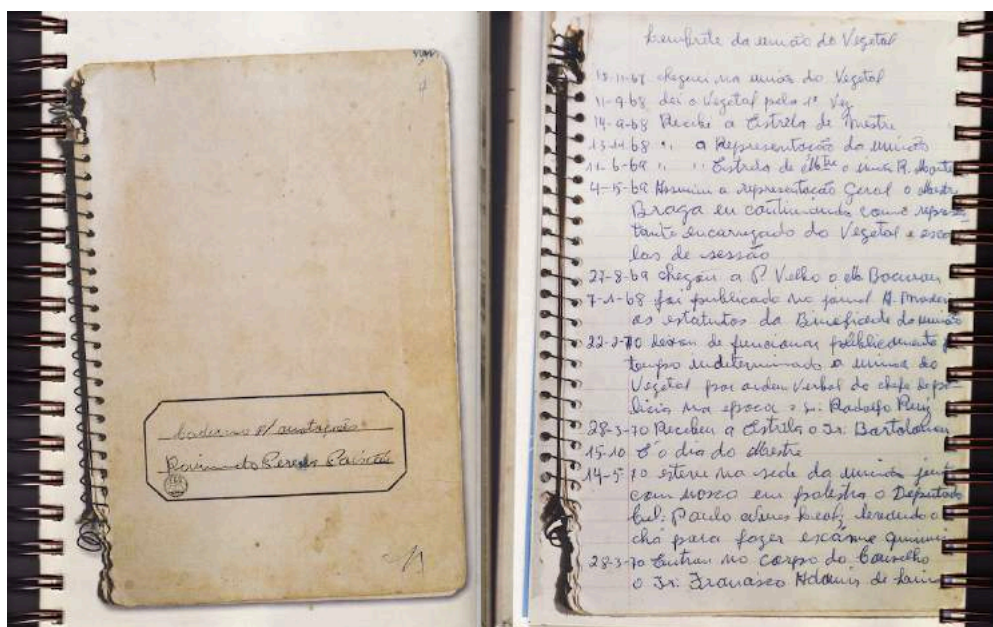 Caderno p/ anotações
Raimundo Pereira Paixão
Lembrete da união do Vegetal
cheguei na união do Vegetal
11-9-68 dei o Vegetal pela 1ª Vez
14-9-68 Recebi a Estrela de Mestre
13-11-68 " a Representação da união
11-6-69 " " Estrela de Mtre o irmão R.
4-15-69 Assumiu a representação Geral o Mestre
Braga eu continuando como represen
tante encarregado do Vegetal e esca
las de sessão
27-8-69 chegou a P. Velho o
7-1-68 foi publicado no jornal A. Madeira
os estatutos da Beneficente da união
22-2-70 deixou de funcionar publicamente p
tempo indeterminado a união do
Vegetal por ordem Verbal do chefe de po-
lícia na epoca o Sr. Rodolfo Ruiz
28-3-70 Recebeu a Estrela o Sr. Bartolomeu
15-10 É o dia do Mestre
14-5-70 esteve na sede da união junto
com nosco em palestra o Deputado
Paulo levando o
chá para fazer exame quimico
28-3-70 Entrou no corpo do Conselho
o Sr. Francisco Adamir de Lima